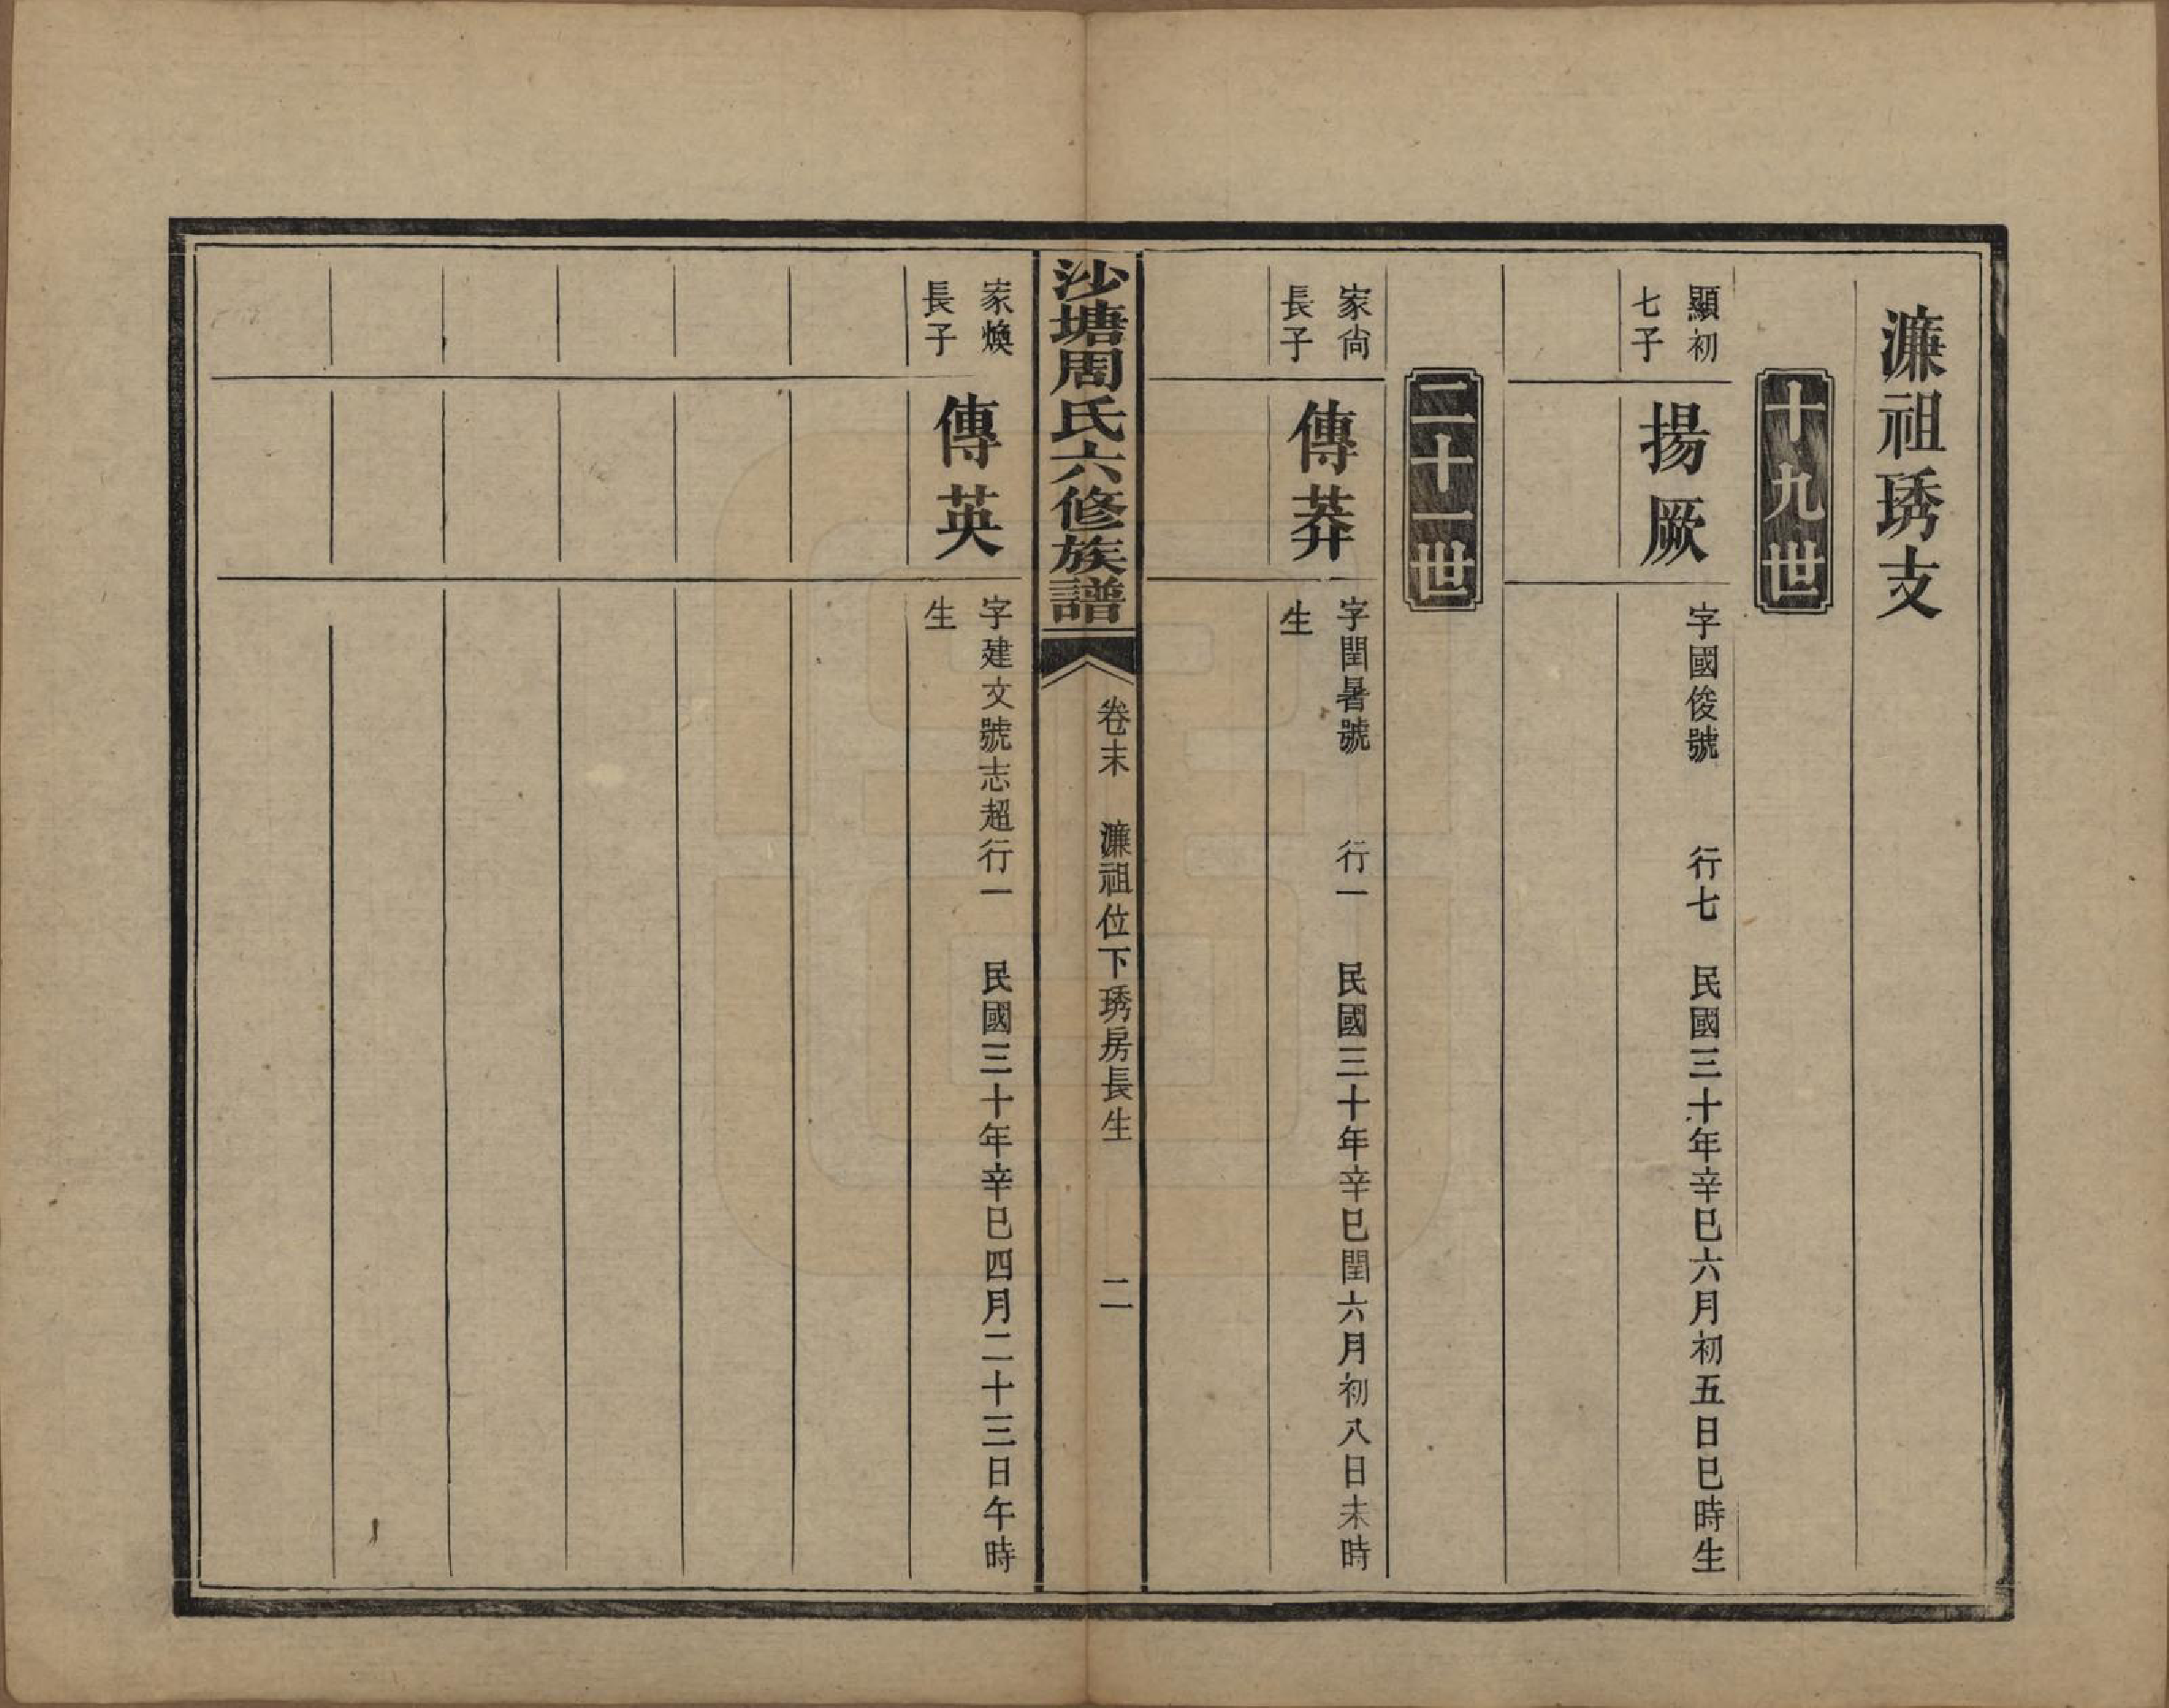 濂祖琇支
十九世
顯初
七子
揚厥
字國俊號　　行七　民國三十年辛巳六月初五日巳時生
二十一世
家尙
長子
傳莽
字閏暑號　　行一　民國三十年辛巳閏六月初八日未時
生
沙塘周氏六修族譜
卷末　濂祖位下琇房長生　　　二
家煥
長子
傳英
字建文號志超行一　民國三十年辛巳四月二十三日午時
生